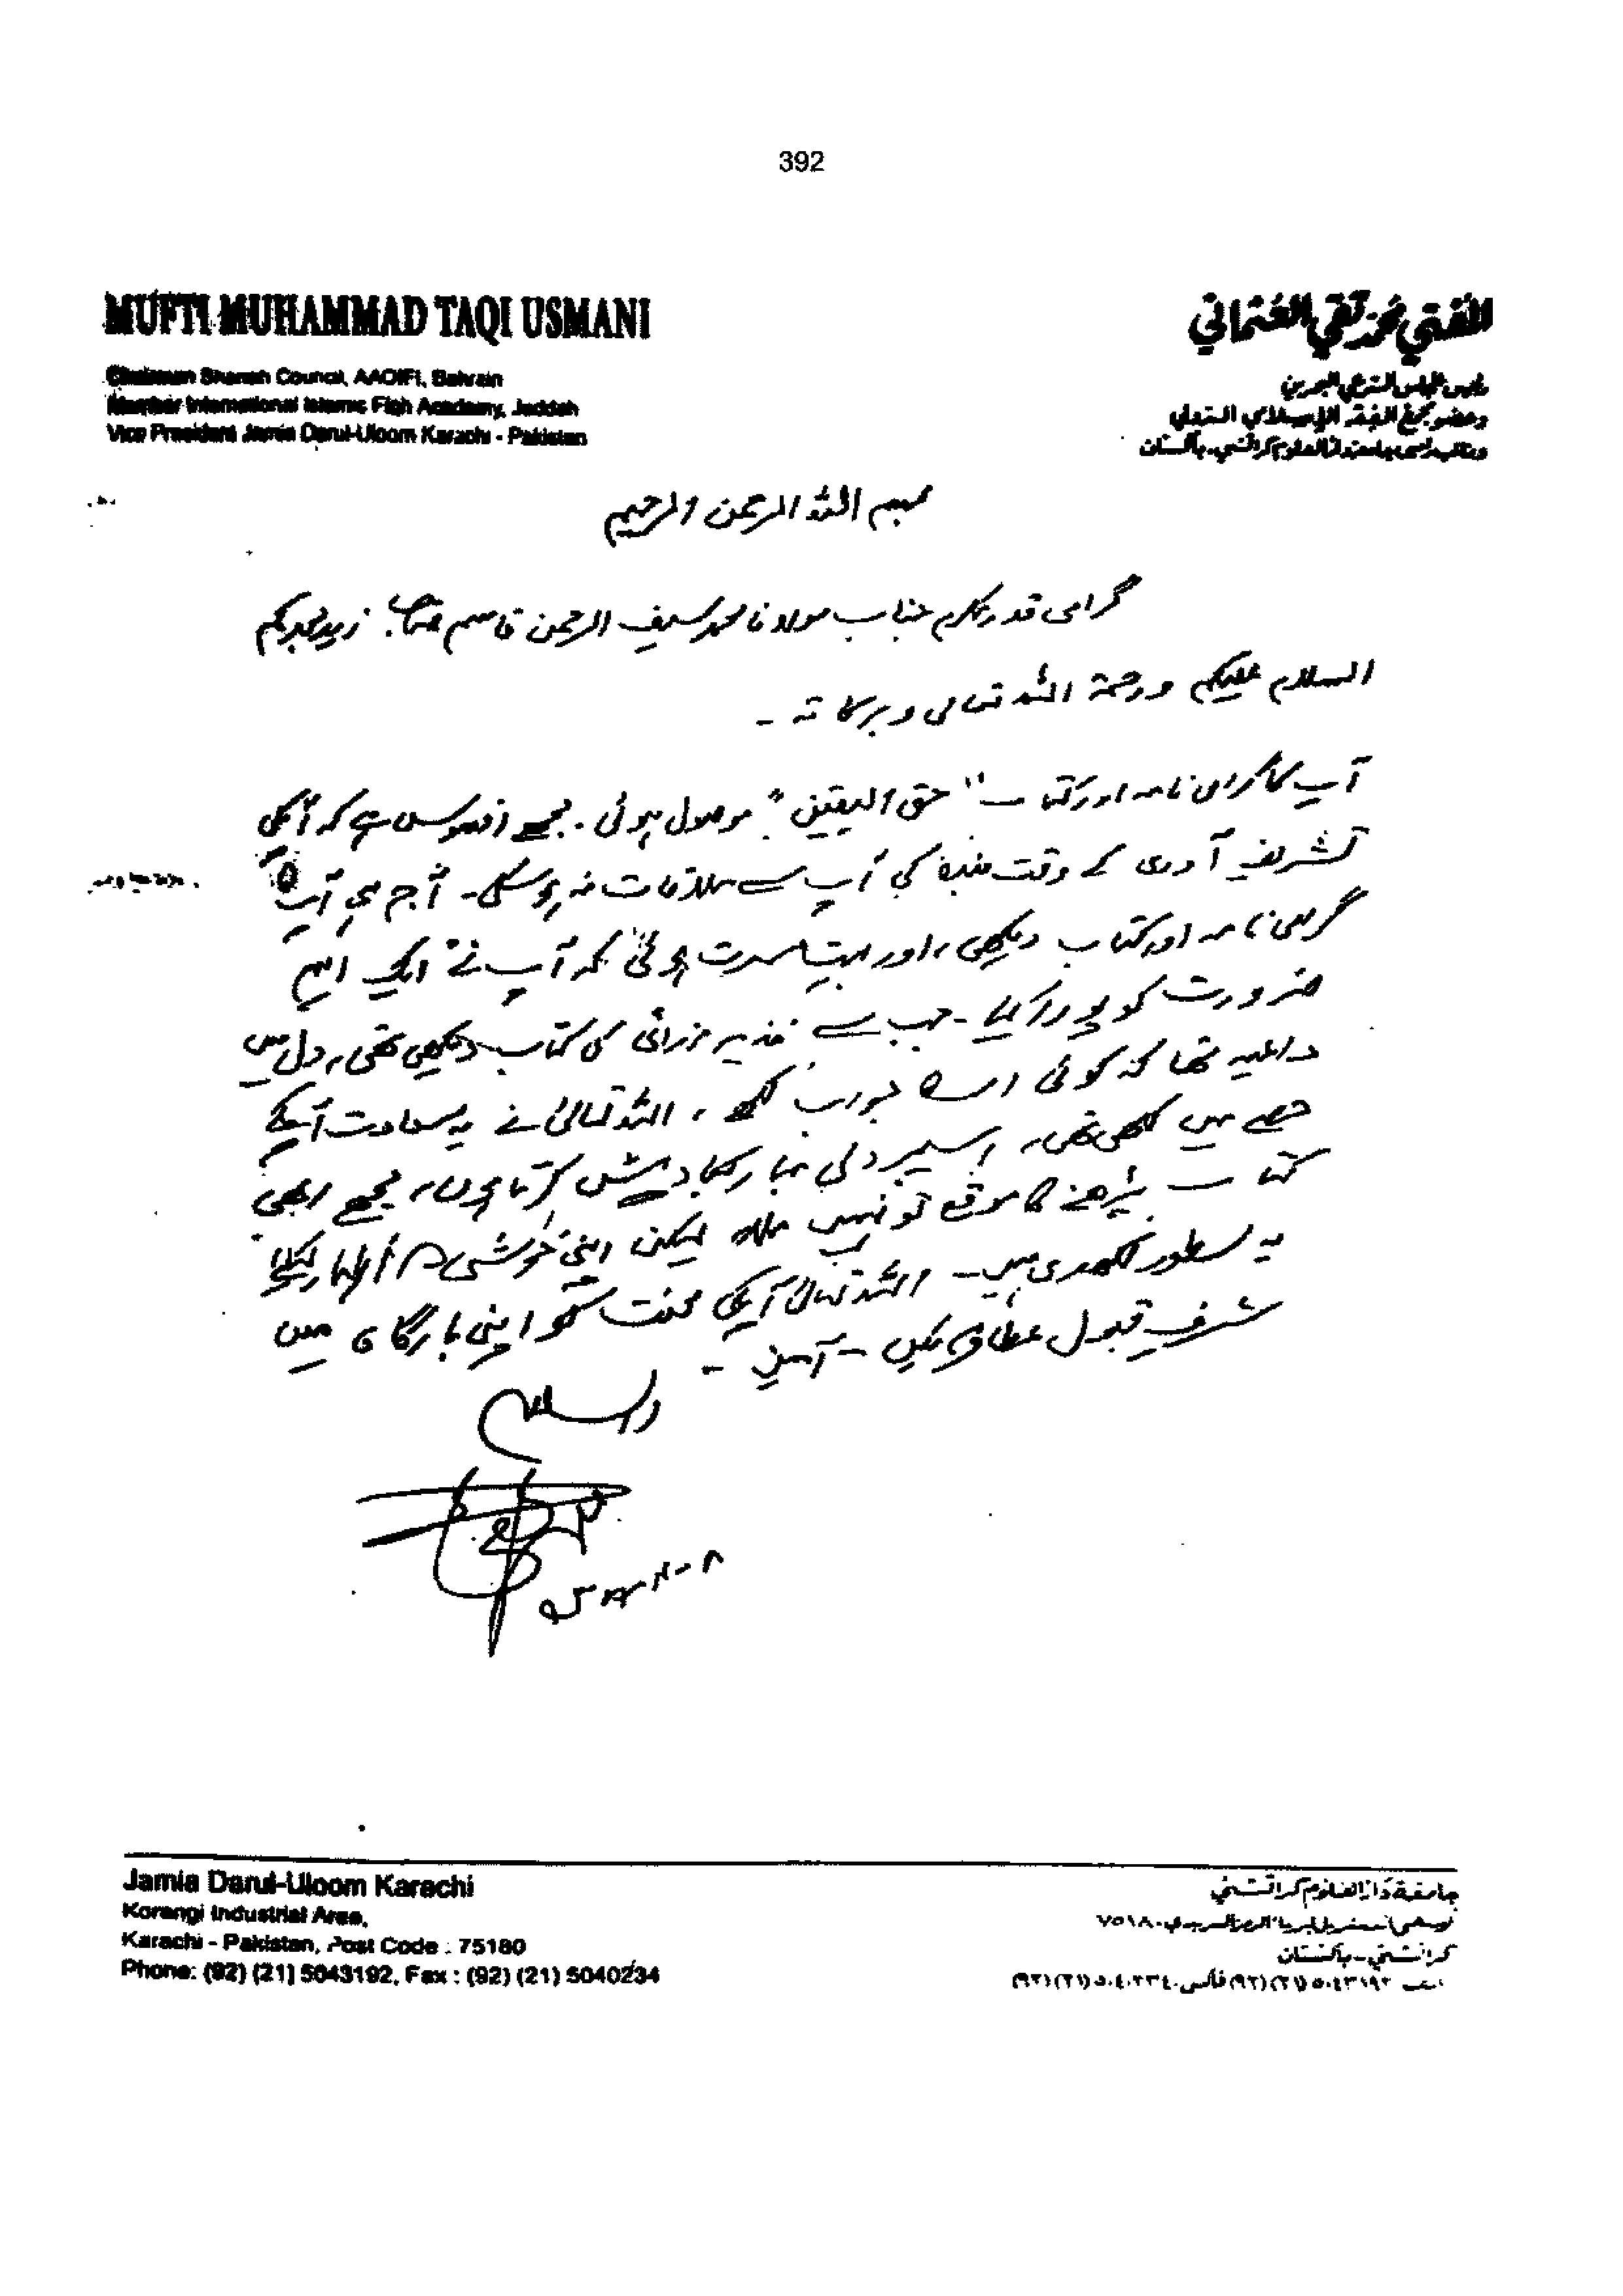 392
MUFTI MUHAMMAD TAQI USMANI
Chairman Shariah Council, AAOIFI, Bahrain
Member International Islamic Fiqh Academy, Jeddah
Vice President Jamia Darul-Uloom Karachi - Pakistan
المفتي محمد تقي العثماني
رئيس المجلس الشرعي البحرين
وعضو مجمع الفقه الإسلامي الدولي
ونائب رئيس جامعة دارالعلوم كراتشي - باكستان
بسم اللہ الرحمن الرحیم
گرامی قدر مکرم جناب مولانا محمد سیف الرحمن قاسم صاحب زید مجدکم
السلام علیکم ورحمۃ اللہ تعالی وبرکاتہ -
آپ کا گرامی نامہ اور کتاب "حق الیقین" موصول ہوئی . مجھے افسوس ہے کہ آپکی
تشریف آوری کے وقت بندہ کی آپ سے ملاقات نہ ہوسکی - آج ہی آپ کا
گرامی نامہ اور کتاب دیکھی، اور بہت مسرت ہوئی کہ آپ نے ایک اہم
ضرورت کو پورا کیا - جب سے کی کتاب دیکھی تھی، دل میں
داعیہ تھا کہ کوئی اسکا جواب لکھے، اللہ تعالیٰ نے یہ سعادت آپکے
حصے میں لکھی تھی، اسپر دلی مبارکباد پیش کرتا ہوں، مجھے ابھی
کتاب پڑھنے کا موقع تو نہیں ملا، لیکن اپنی خوشی کا اظہار کیلئے
یہ سطور لکھدی ہیں - اللہ تعالیٰ آپکی محنت کو اپنی بارگاہ میں
شرف قبول عطا فرمائیں - آمین -
والسلام
Jamia Darul-Uloom Karachi
Korangi Industrial Area,
Karachi - Pakistan, Post Code : 75180
Phone: (92) (21) 5043192, Fax : (92) (21) 5040234
جامعة دارالعلوم كراتشي
كراتشي - باكستان